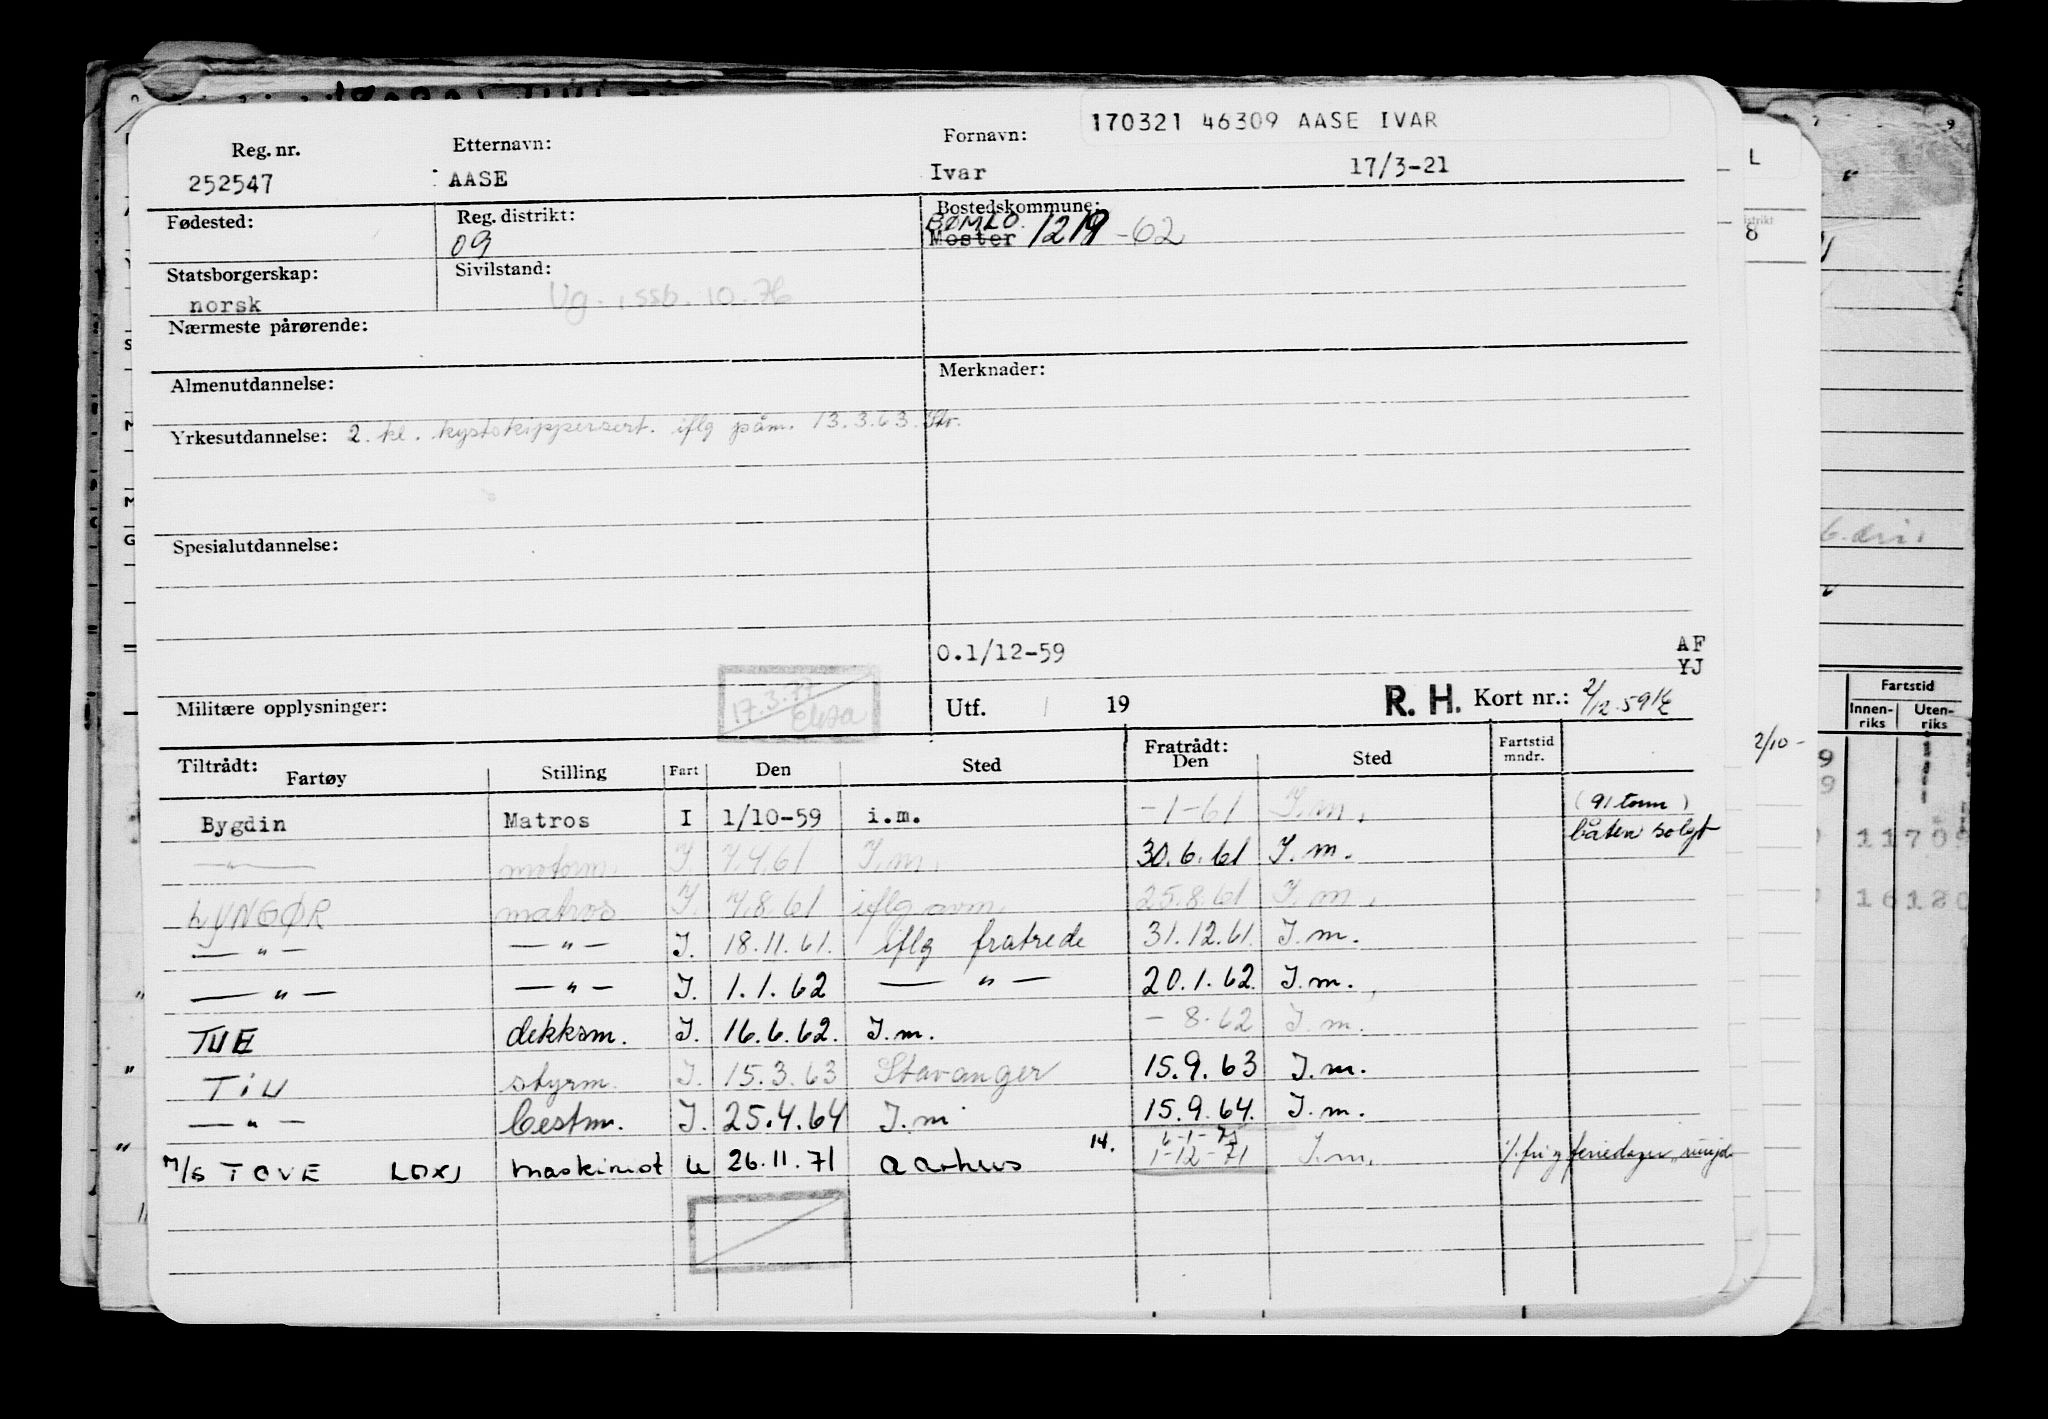 170321 46309 AASE IVAR
Reg. nr. Etternavn: Fornavn:
252547 AASE Ivar 17/3-21
Fødested: Reg. distrikt: Bostedskommune:
09 BØMLO Moster 1219 -62
Statsborgerskap: Sivilstand:
norsk Ug. ssb. 10.76
Nærmeste pårørende:
Almenutdannelse: Merknader:
Yrkesutdannelse: 2. kl. kystskippersert. iflg påm. 13.3.63.
Spesialutdannelse:
O.1/12-59 AF
YJ
Militære opplysninger: 17.3.77 Utf. 19 R. H. Kort nr.: 2/12-59
Tiltrådt: Fratrådt:
Fartøy Stilling Fart Den Sted Den Sted Fartstid mndr.
Bygdin Matros I 1/10-59 i.m. -1-61 I.m. (91 tonn)
båten solgt
— " — motorm. I 7.4.61 I.m. 30.6.61 I.m.
LYNGØR matros I. 7.8.61 iflg avm. 25.8.61 I.m.
— " — — " — I. 18.11.61. iflg fratrede 31.12.61. I.m.
— " — — " — I. 1.1.62 — " — 20.1.62. I.m.
TUE dekksm. I. 16.6.62. I.m. - 8-62 I.m.
TiU styrm. I. 15.3.63 Stavanger 15.9.63 I.m.
— " — bestm. I. 25.4.64 I.m 15.9.64. I.m.
M/S TOVE maskinist U 26.11.71 Aarhus 14. 1-12-71 I.m.
Fartstid
Innen-riks Uten-riks
2/10-